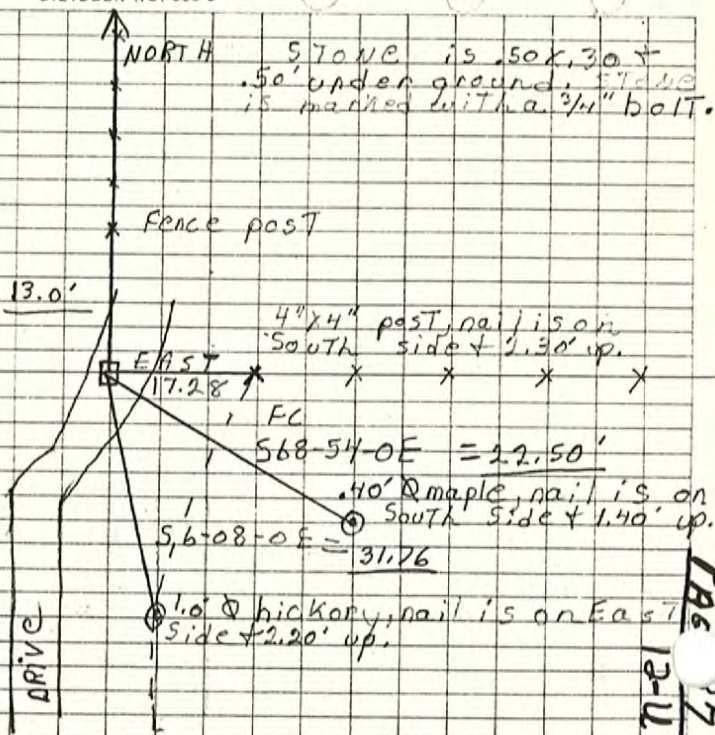 NORTH
STONE is .50 x .30 +
.50' under ground. STONE
is marked with a 3/4" bolT.
Fence posT
13.0'
4"X4" posT, nail is on
SouTh side +
EAST
17.28'
FC
S68-54-0E = 22.50'
.40' Ø maple, nail is on
SouTh Side + 1.40' up.
S,6-08-0E =
31.76
1.0' Ø hickory, nail is on EasT
Side + 2.20' up.
DRIVE